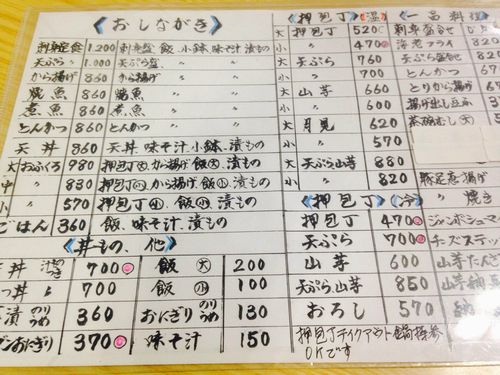 おしながき
刺身定食 1,200 刺身盛 飯、小鉢、味そ汁、漬もの
天ぷら 〃 1,000 天ぷら盛 〃 〃
から揚げ 860 から揚げ 〃 〃
焼魚 860 焼魚 〃 〃
煮魚 860 煮魚 〃 〃
とんかつ 860 とんかつ 〃 〃
天丼 860 天丼 味そ汁 小鉢、漬もの
大 おふくろ 980 押包丁 から揚げ 飯(大)、漬もの
中 〃 830 押包丁 から揚げ 飯(小)、漬もの
小 〃 570 押包丁(小) 飯(小)、漬もの
ごはん 360 飯、味そ汁、漬もの
丼もの、他
丼 汁もの つき 700 飯(大) 200
つ丼 〃 700 飯(小) 100
漬 のり うめ 360 おにぎり のり うめ 130
おにぎり 370 味そ汁 150
押包丁 (温)
大 押包丁 520
小 〃 470
大 天ぷら 760
小 〃 700
大 山芋 660
小 〃 600
大 月見 620
小 〃 570
大 天ぷら山芋 880
小 〃 820
押包丁 (冷)
押包丁 470
天ぷら 700
山芋 600
天ぷら、山芋 850
おろし 570
押包丁テイクアウト
OKです
一品料理
刺身盛合せ
海老フライ 8
天ぷら盛合せ
とんかつ
とり から揚げ
揚げ出し豆ふ
茶碗むし(大)
豚足 唐揚げ
〃 焼き
ジャンボシューマ
チーズスティッ